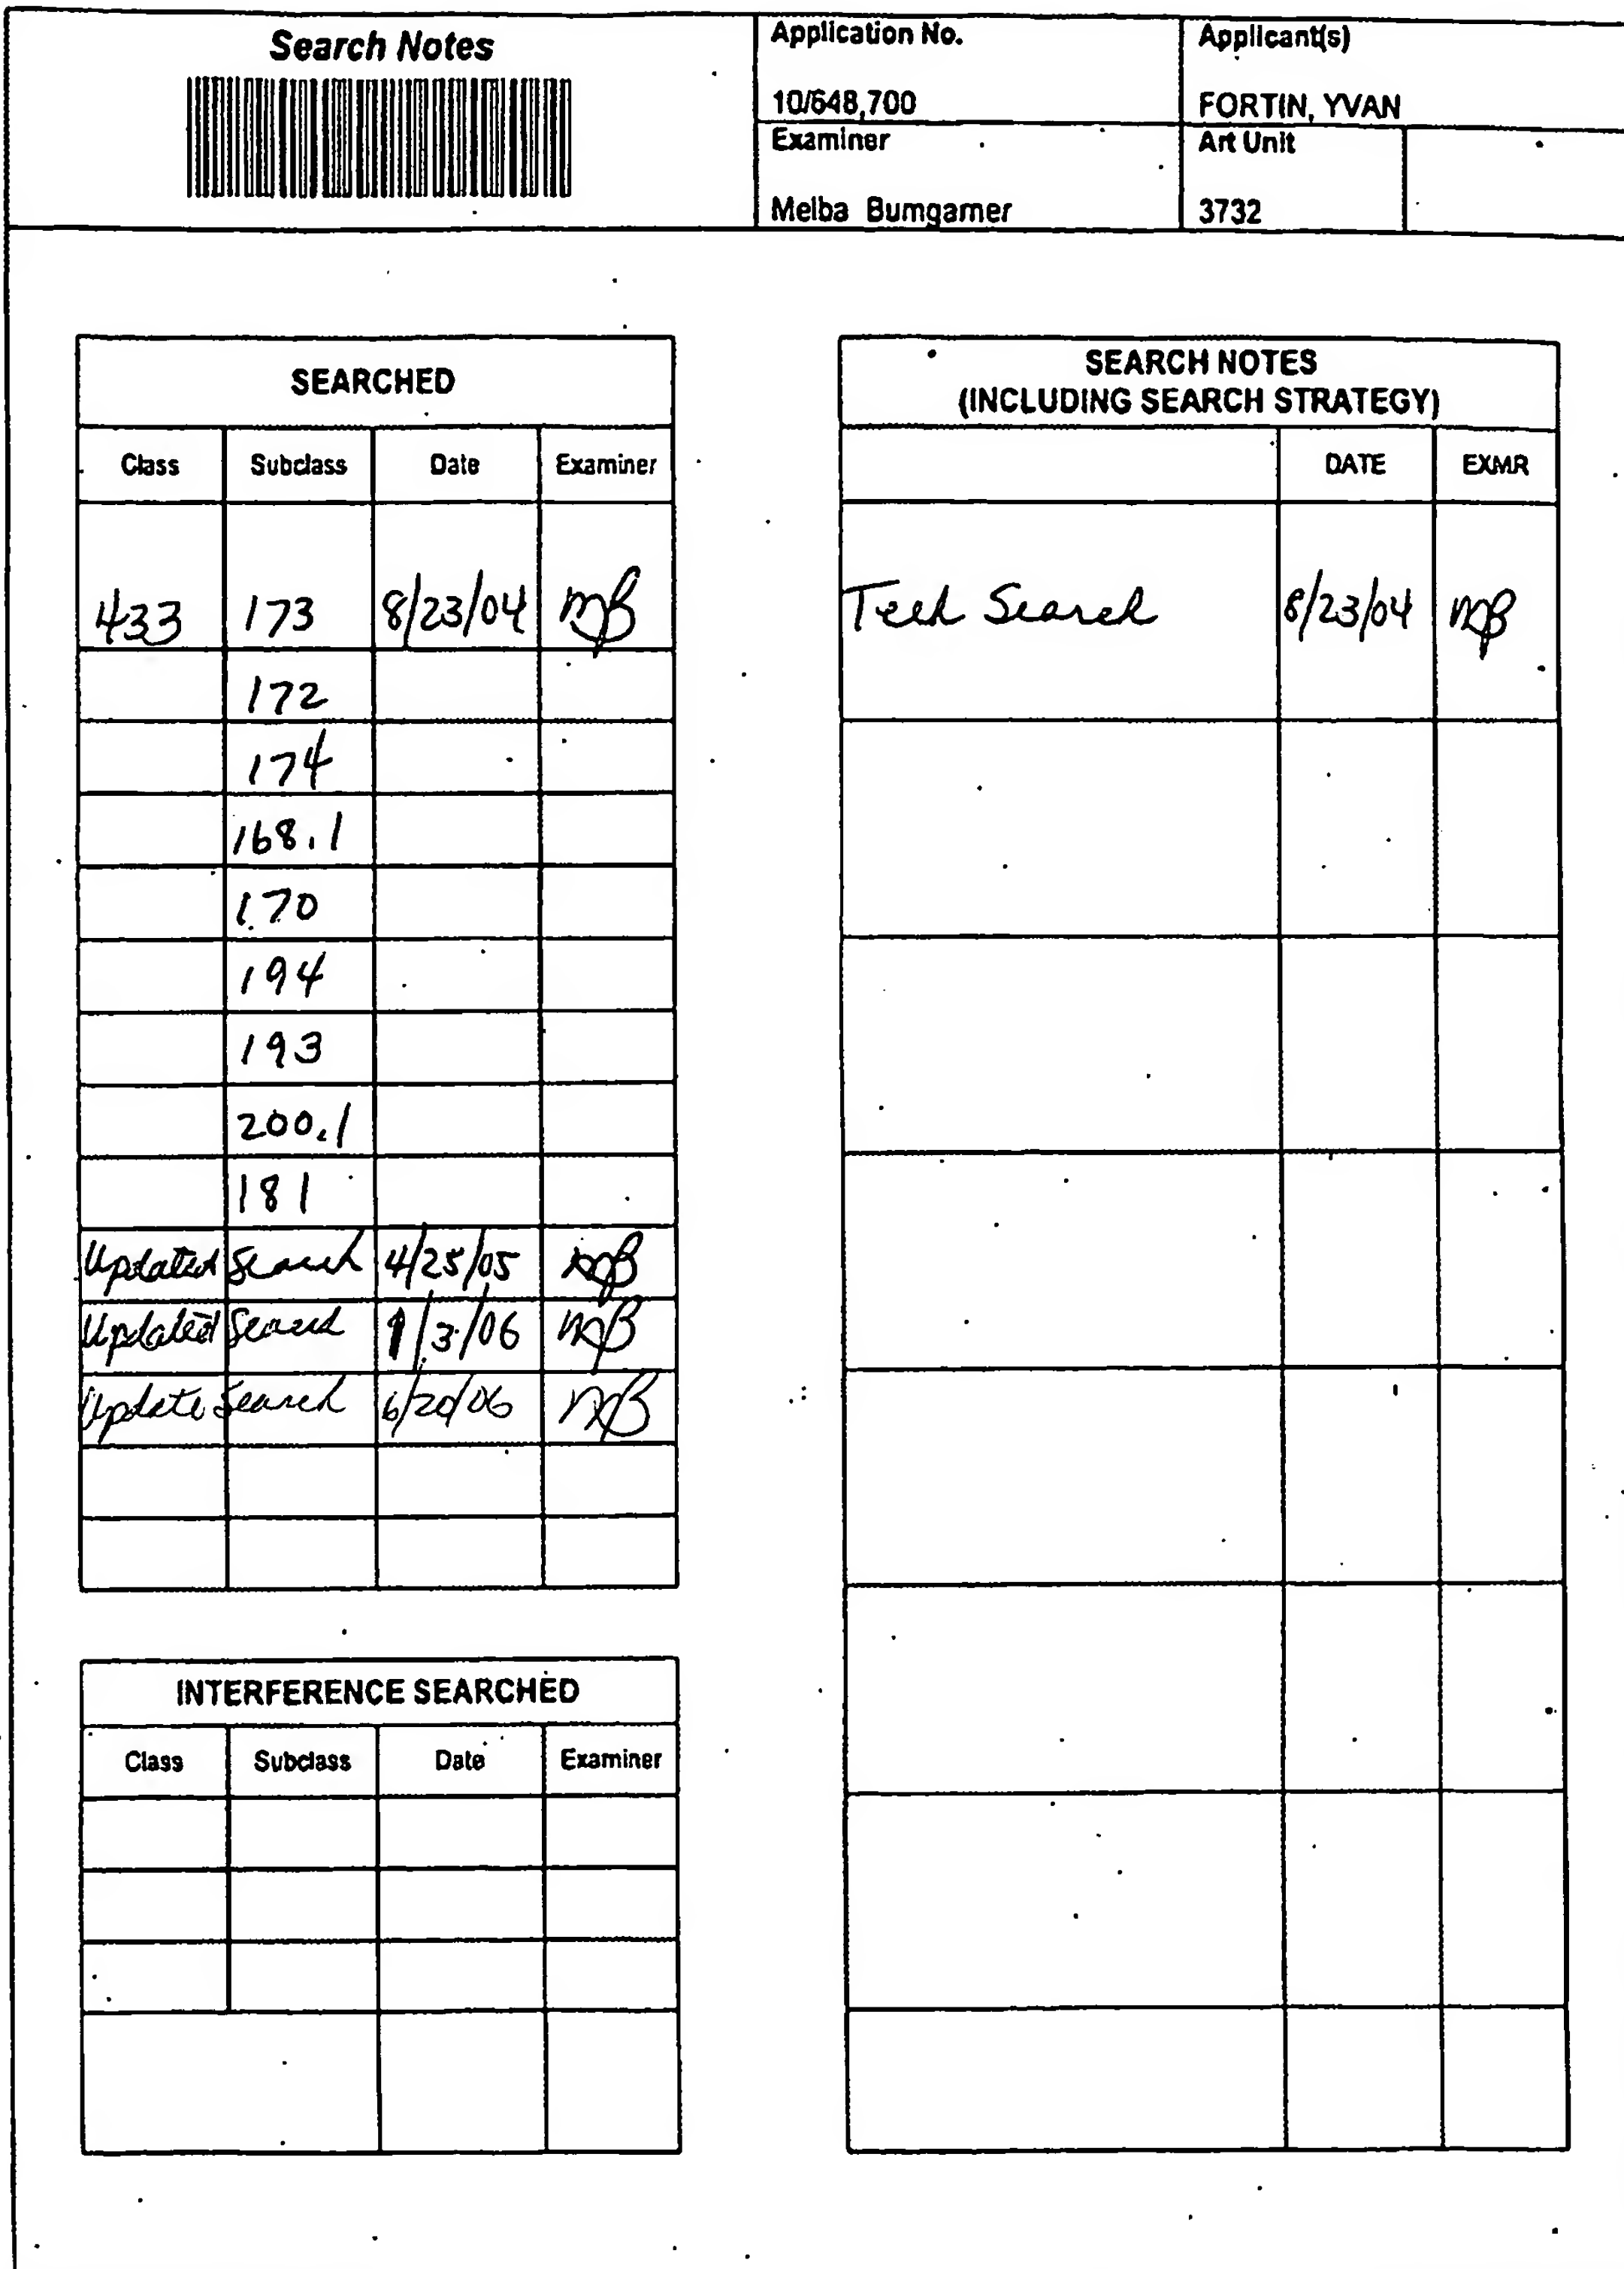 Search Notes
Application No.
10/648,700
Applicant(s)
FORTIN, YVAN
Examiner
Melba Bumgarner
Art Unit
3732
SEARCHED
Class Subclass Date Examiner
433 173 8/23/04 MB
172
174
168.1
170
194
193
200.1
181
Updated Search 4/25/05 MB
Updated Search 1/3/06 MB
Update Search 6/20/06 MB
INTERFERENCE SEARCHED
Class Subclass Date Examiner
SEARCH NOTES
(INCLUDING SEARCH STRATEGY)
DATE EXMR
Tech Search 8/23/04 MB